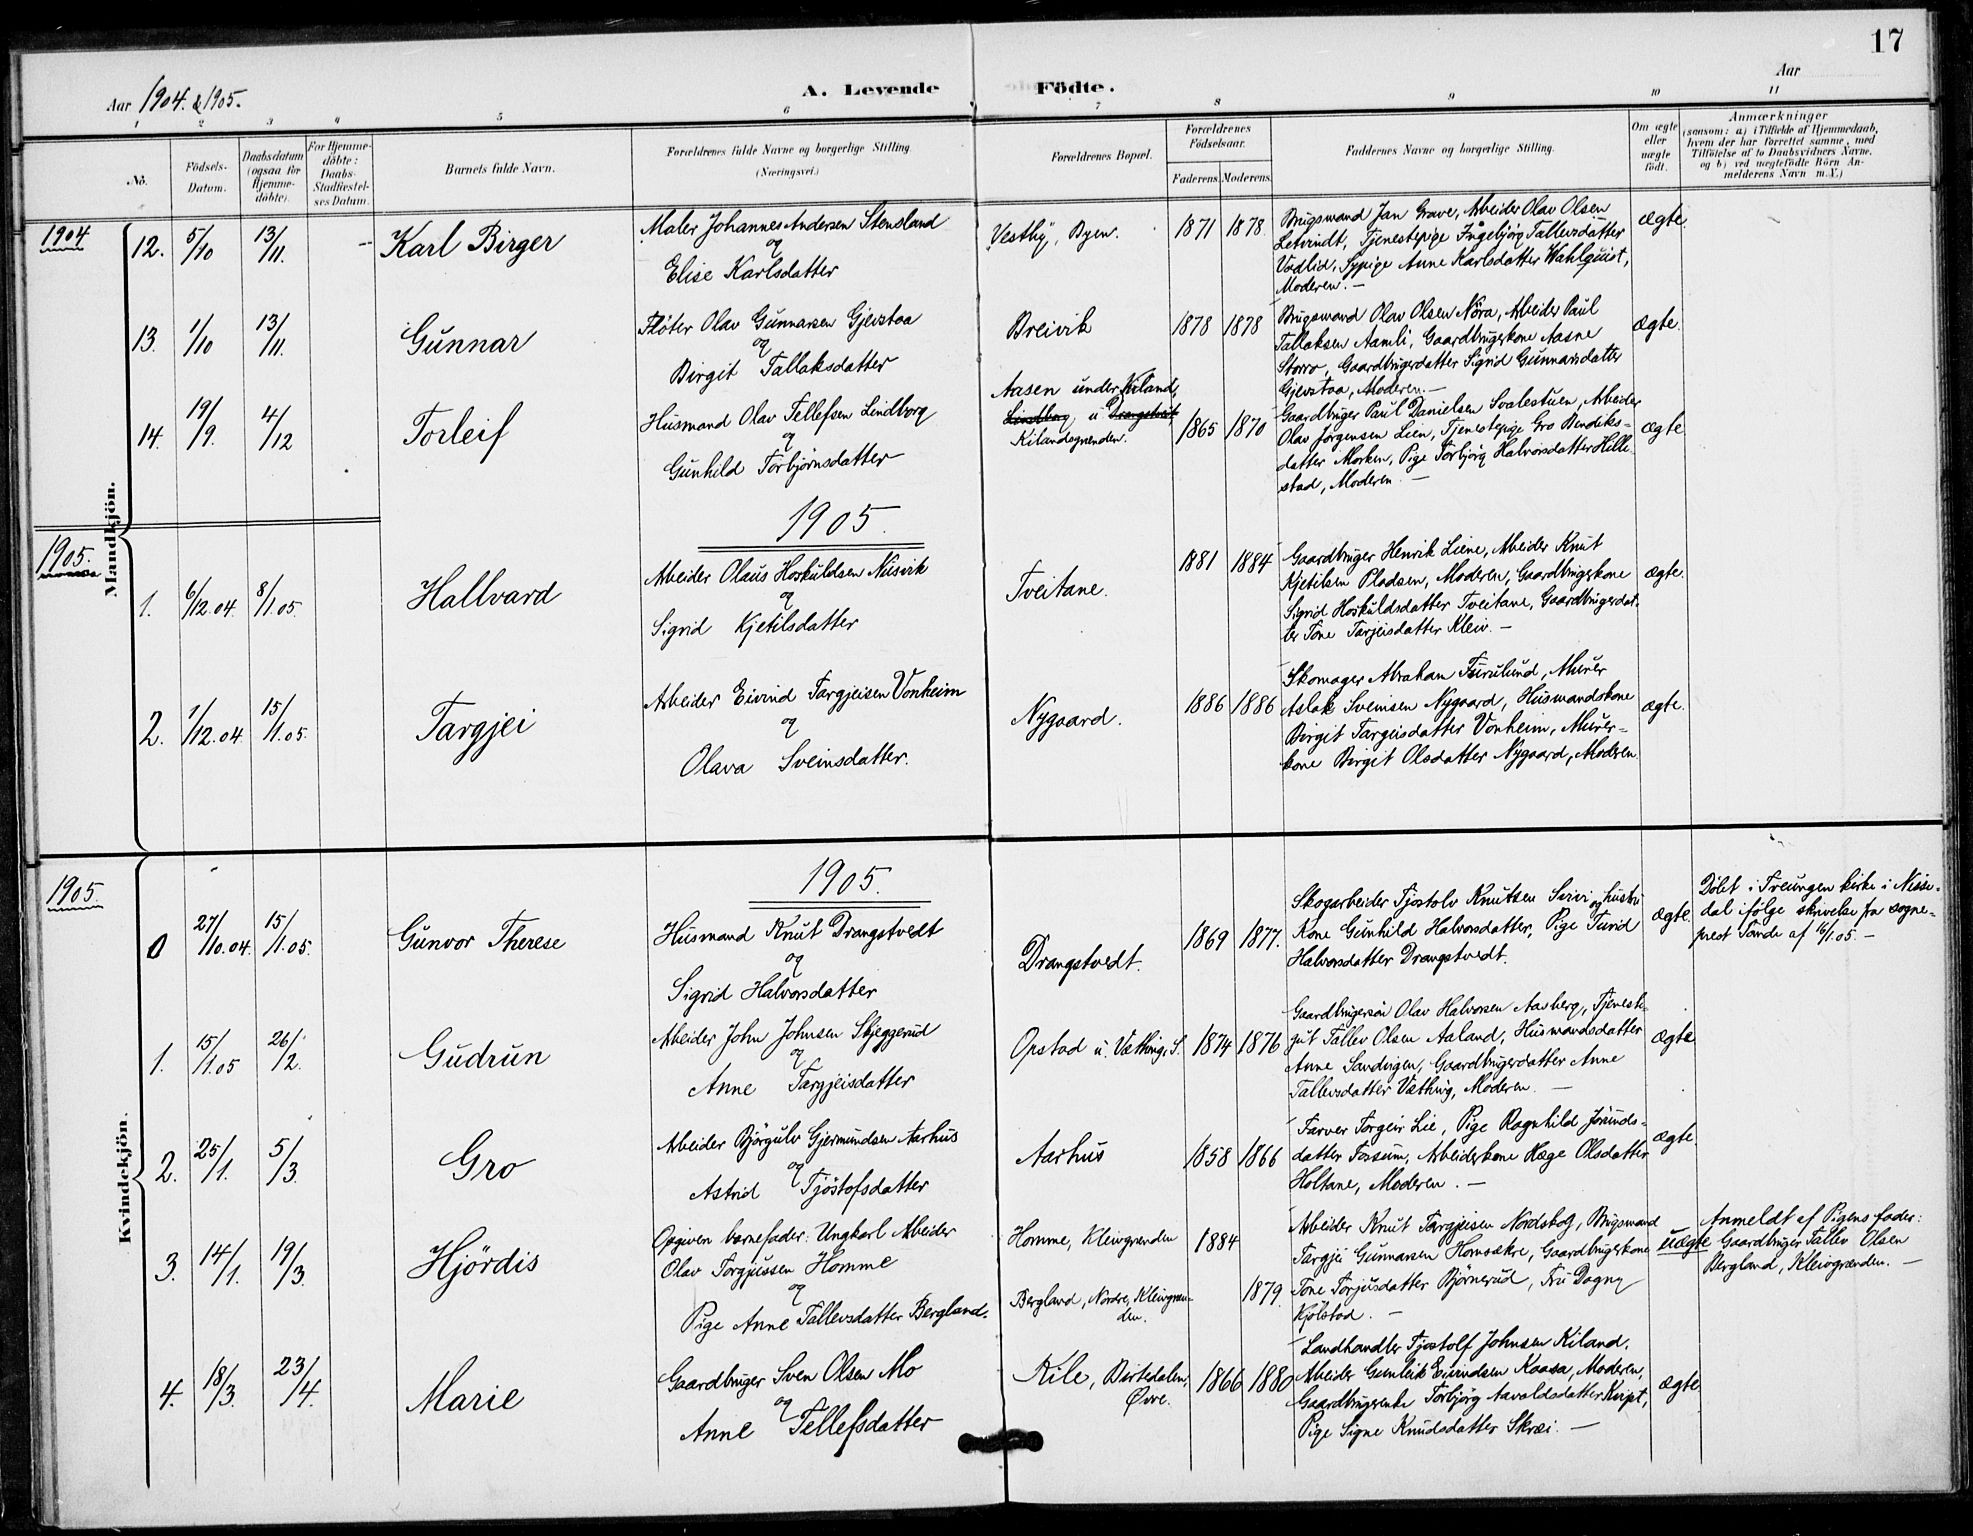 17
Aar 1904. & 1905.
A. Levende Födte.
Aar
1 2 3 4 5 6 7 8 9 10 11
No.
Födsels-
Datum.
Daabsdatum
(ogsaa for
Hjemme-
döbte).
For Hjemme-
döbte:
Daabs-
Stadfæstel-
ses Datum.
Barnets fulde Navn.
Forældrenes fulde Navne og borgerlige Stilling.
(Næringsvei.)
Forældrenes Bopæl.
Forældrenes
Födselsaar.
Faderens. Moderens.
Faddernes Navne og borgerlige Stilling.
Om ægte
eller
uægte
födt.
Anmærkninger
(saasom: a) i Tilfælde af Hjemmedaab,
hvem der har forrettet samme, med
Tilföielse af to Daabsvidners Navne,
og b) ved uægtefödte Börn An-
melderens Navn m. V.)
Mandkjön.
1904
12. 5/10 13/11. - Karl Birger
Maler Johannes Andersen Stensland
og
Elise Karlsdatter
"Vestby", Byen. 1871 1878
Brugsmand Jan Grave, Arbeider Olav Olsen
Letvindt, Tjenestepige Ingebjörg Tallevsdatter
Vadlid, Sypige Anne Karlsdatter Wahlquist,
Moderen. -
ægte.
13. 1/10 13/11. Gunnar
Flöter Olav Gunnarsen Gjevstaa
og
Birgit Tallaksdatter
Breivik 1878 1878
Brugsmand Olav Olsen Nöra, Arbeider Paul
Tallaksen Aamli, Gaardbrugerkone Aasne
Storro, Gaardbrugerdatter Sigrid Gunnarsdatter
Gjevstaa, Moderen. -
ægte.
14. 19/9. 4/12 Torleif
Husmand Olav Tellefsen Lindborg
og
Gunhild Torbjörnsdatter
Aasen under Kiland,
Lindborg u Drangstvedt
Kilandsgrænden.
1865 1870
Gaardbruger Paul Danielsen Svalestuen, Arbeider
Olav Jörgensen Lien, Tjenestepige Gro Bendiks-
datter Morken, Pige Torbjörg Halvorsdatter Hille-
stad, Moderen. -
ægte
1905.
1905.
1. 6/12.04 8/1.05. Hallvard
Arbeider Olaus Hoskuldsen Nisvik
og
Sigrid Kjetilsdatter
Tveitane. 1881 1884
Gaardbruger Henrik Liene, Arbeider Knut
Kjetilsen Pladsen, Moderen, Gaardbrugerkone
Sigrid Hoskuldsdatter Tveitane, Gaardbrugerdat-
ter Tone Tarjeisdatter Kleiv. -
ægte.
2. 1/12.04. 15/1.05. Targjei
Arbeider Eivind Targjeisen Vonheim
og
Olava Sveinsdatter.
Nygaard. 1886 1886
Skomager Abraham Furulund, Murer
Aslak Sveinsen Nygaard, Husmandskone
Birgit Targeisdatter Vonheim, Murer-
kone Birgit Olsdatter Nygaard, Moderen
ægte.
Kvindekjön.
1905.
1905.
0 27/10.04. 15/1.05. Gunvor Therese
Husmand Knut Drangstvedt
og
Sigrid Halvorsdatter
Drangstvedt. 1869 1877.
Skogarbeider Tjostolv Knutsen og hustru
Kone Gunhild Halvorsdatter, Pige Turid
Halvorsdatter Drangstvedt.
ægte.
Döbt i Treungen kirke i Nisse-
dal ifölge skrivelse fra sogne-
prest Sande af 16/1.05. -
1. 15/1.05 26/2. Gudrun
Arbeider John Johnsen Skjeggerud
og
Anne Targjeisdatter
Opstad u. Væthing, S. 1874 1876
Gaardbrugersön Olav Halvorsen Aasberg, Tjeneste-
gut Tallev Olsen Aaland, Husmandsdatter
Anne Sandvigen, Gaardbrugerdatter Anne
Tallevsdatter Væthing, Moderen. -
ægte
2. 25/1. 5/3. Gro
Arbeider Björgulv Gjermundsen Aarhus
og
Astrid Tjöstofsdatter
Aarhus 1858 1866
Farver Torgeir Lie, Pige Ragnhild Jörunds-
datter Fossum, Arbeiderkone Hæge Olsdatter
Holtane, Moderen. -
ægte.
3. 14/1. 19/3. Hjördis
Opgiven barnefader: Ungkarl Arbeider
Olav Torgjussen Homme
og
Pige Anne Tallevsdatter Bergland.
Homme, Kleivgrænden 1884
Bergland, Nordre, Kleivgræn-
den. 1879.
Arbeider Knut Targjeisen Nordskog, Brugsmand
Targjei Gunnarsen Homsækre, Gaardbrugerkone
Tone Torjusdatter Björnerud, Fru Dagny
Kjölstad. -
uægte
Anmeldt af Pigens fader:
Gaardbruger Tallev Olsen
Bergland, Kleivgrænden. -
4. 18/3. 23/4. Marie
Gaardbruger Sven Olsen Mo
og
Anne Tellefsdatter
Kile, Birtedalen,
Övre. 1866 1880
Landhandler Tjostolf Johnsen Kiland,
Arbeider Gunleik Eivindsen Kaasa, Moderen,
Gaardbrugerenke Torbjörg Aavoldsdatter
Pige Signe Knudsdatter Skræi. -
ægte